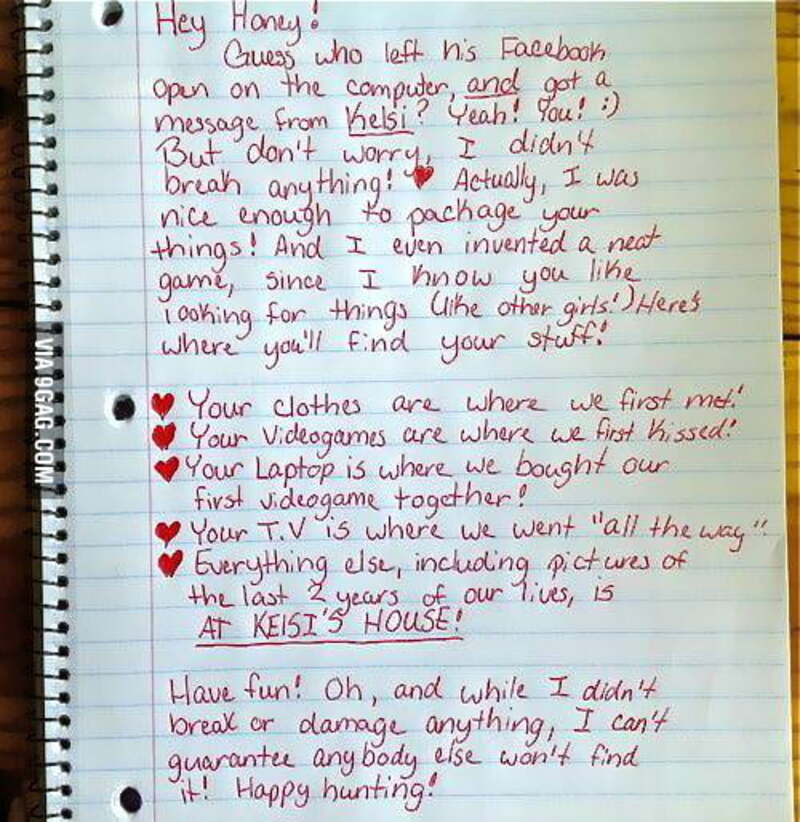 Hey Honey!
Guess who left his Facebook
open on the computer, and got a
message from Kelsi? Yeah! You! :)
But don't worry, I didn't
break anything! ♥ Actually, I was
nice enough to package your
things! And I even invented a neat
game, since I know you like
looking for things (like other girls!) Here's
where you'll find your stuff!
♥ Your clothes are where we first met!
♥ Your Videogames are where we first kissed!
♥ Your Laptop is where we bought our
first videogame together!
♥ Your T.V is where we went "all the way".
♥ Everything else, including pictures of
the last 2 years of our lives, is
AT KElSI'S HOUSE!
Have fun! Oh, and while I didn't
break or damage anything, I can't
guarantee anybody else won't find
it! Happy hunting!
VIA 9GAG.COM